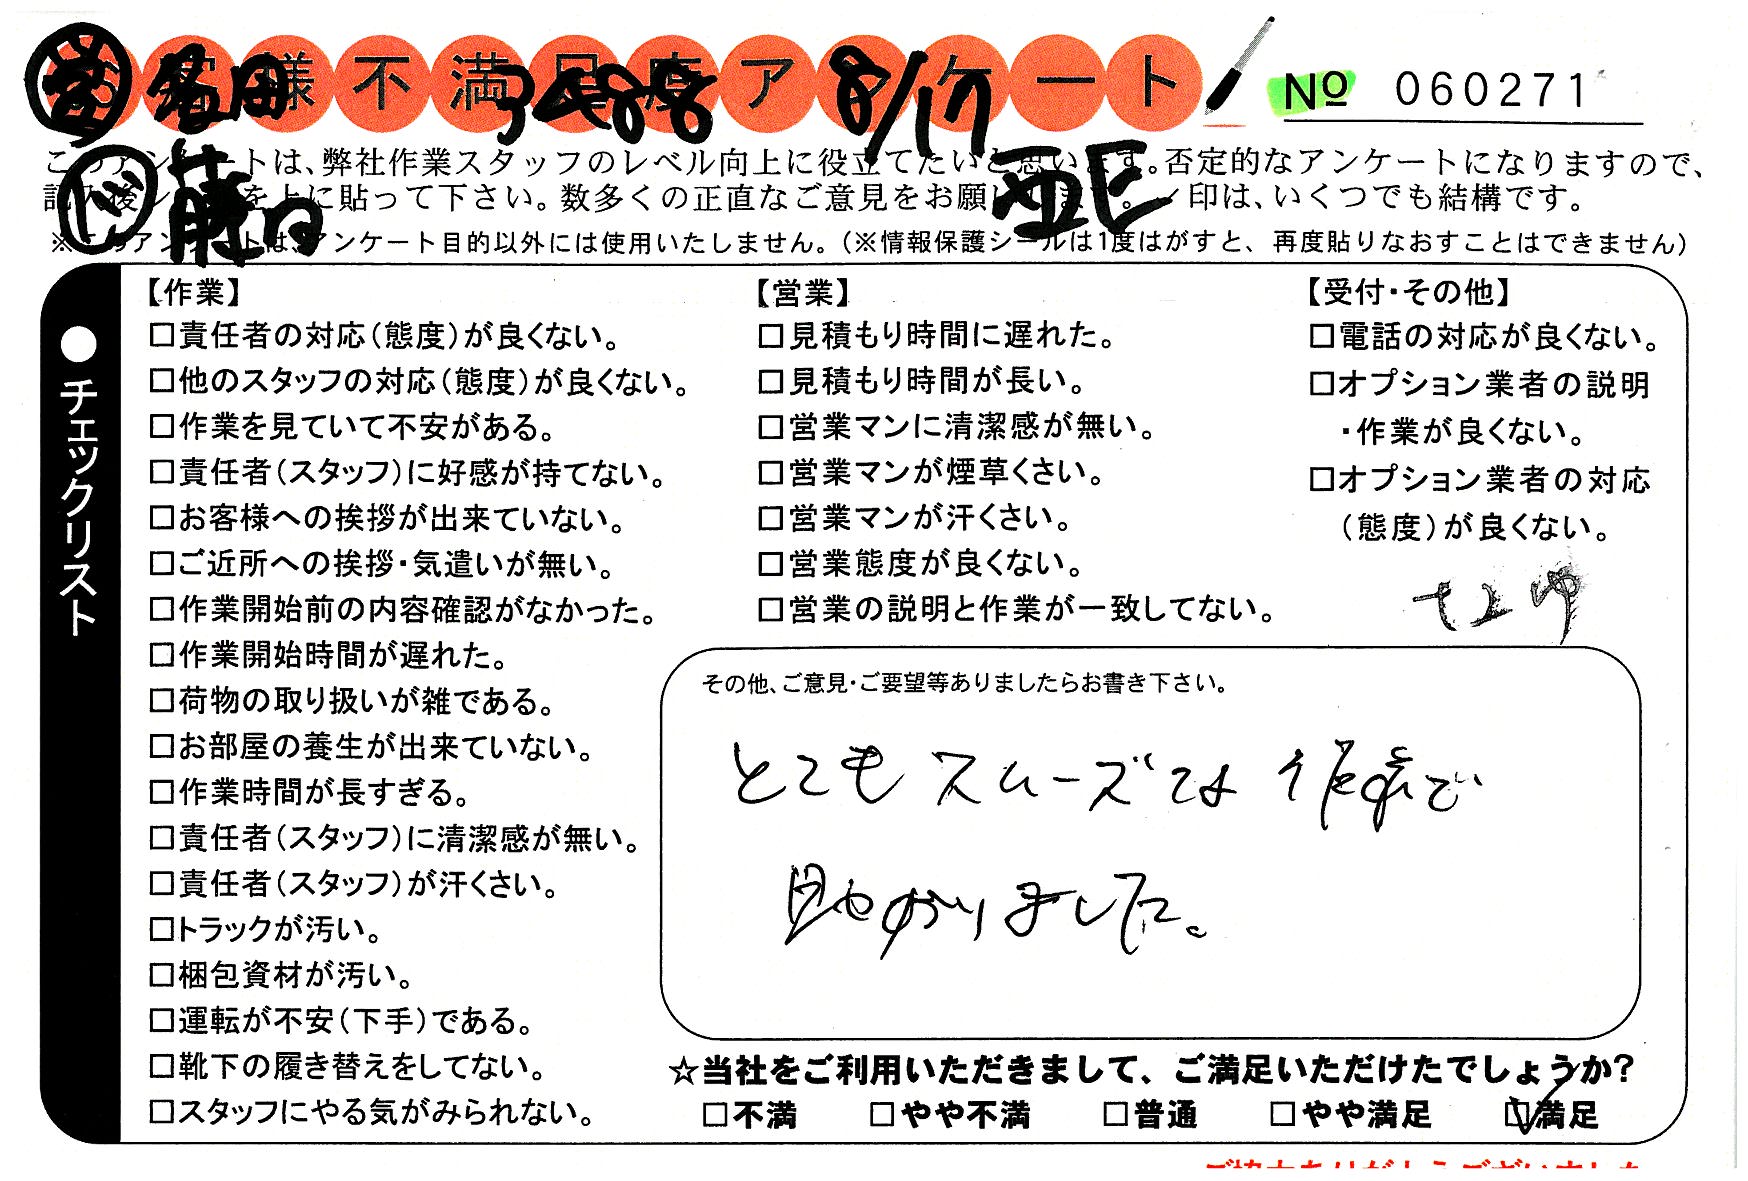 お客様不満足度アンケート
営 名田 3488 8/17
No 060271
このアンケートは、弊社作業スタッフのレベル向上に役立てたいと思います。否定的なアンケートになりますので、
記入後シールを上に貼って下さい。数多くの正直なご意見をお願いします。✓印は、いくつでも結構です。
※このアンケートは、アンケート目的以外には使用いたしません。（※情報保護シールは1度はがすと、再度貼りなおすことはできません）
●チェックリスト
【作業】
□責任者の対応（態度）が良くない。
□他のスタッフの対応（態度）が良くない。
□作業を見ていて不安がある。
□責任者（スタッフ）に好感が持てない。
□お客様への挨拶が出来ていない。
□ご近所への挨拶・気遣いが無い。
□作業開始前の内容確認がなかった。
□作業開始時間が遅れた。
□荷物の取り扱いが雑である。
□お部屋の養生が出来ていない。
□作業時間が長すぎる。
□責任者（スタッフ）に清潔感が無い。
□責任者（スタッフ）が汗くさい。
□トラックが汚い。
□梱包資材が汚い。
□運転が不安（下手）である。
□靴下の履き替えをしてない。
□スタッフにやる気がみられない。
【営業】
□見積もり時間に遅れた。
□見積もり時間が長い。
□営業マンに清潔感が無い。
□営業マンが煙草くさい。
□営業マンが汗くさい。
□営業態度が良くない。
□営業の説明と作業が一致してない。
【受付・その他】
□電話の対応が良くない。
□オプション業者の説明
・作業が良くない。
□オプション業者の対応
（態度）が良くない。
その他、ご意見・ご要望等ありましたらお書き下さい。
とてもスムーズでよ 作業で
助かりました。
☆当社をご利用いただきまして、ご満足いただけたでしょうか？
□不満 □やや不満 □普通 □やや満足 ☑満足
ご協力ありがとうございました